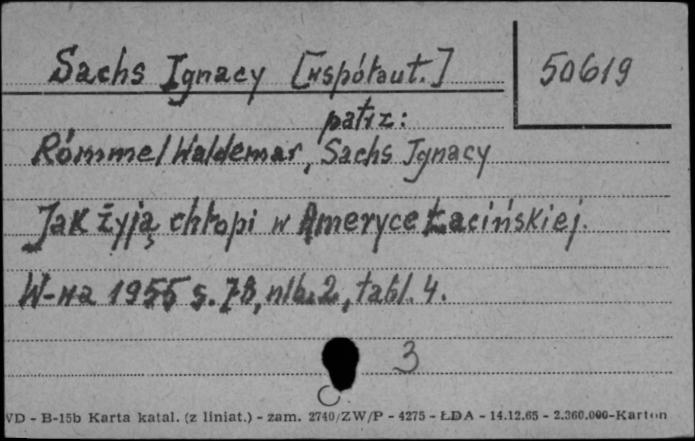 Sachs Ignacy [współaut.] 50619
patrz:
Rómmel Waldemar, Sachs Ignacy
Jak żyją chłopi w Ameryce Łacińskiej.
W-wa 1955 s. 78, nlb. 2, tabl. 4.
3
VD - B-15b Karta katal. (z liniat.) - zam. 2740/ZW/P - 4275 - ŁDA - 14.12.65 - 2.360.000-Karton